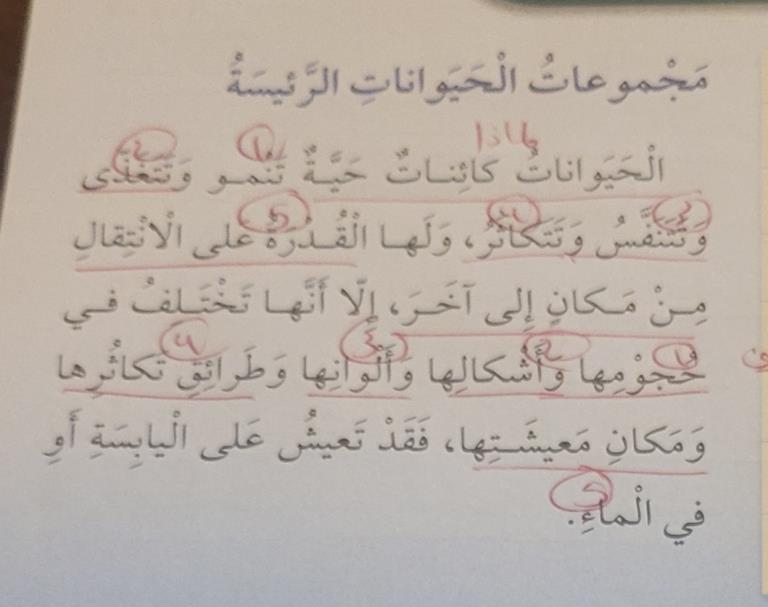 مَجْموعاتُ الْحَيَواناتِ الرَّئيسَةُ
ماذا
الْحَيَواناتُ كائِنـاتٌ حَيَّـةٌ تَنمـو وَتَتَغَذّى
وَتَتَنَفَّسُ وَتَتَكاثَرُ، وَلَهـا الْقُـدْرَةُ على الْانْتِقالِ
مِـنْ مَـكانٍ إِلى آخَـرَ، إِلّا أَنَّهـا تَخْتَـلِفُ فـي
حُجوْمِها وَأَشْكالِها وَأَلْوانِها وَطَرائِقِ تَكاثُرِها
وَمَكانِ مَعيشَـتِها، فَقَدْ تَعيشُ عَلى الْيابِسَةِ أَوِ
في الْماءِ.